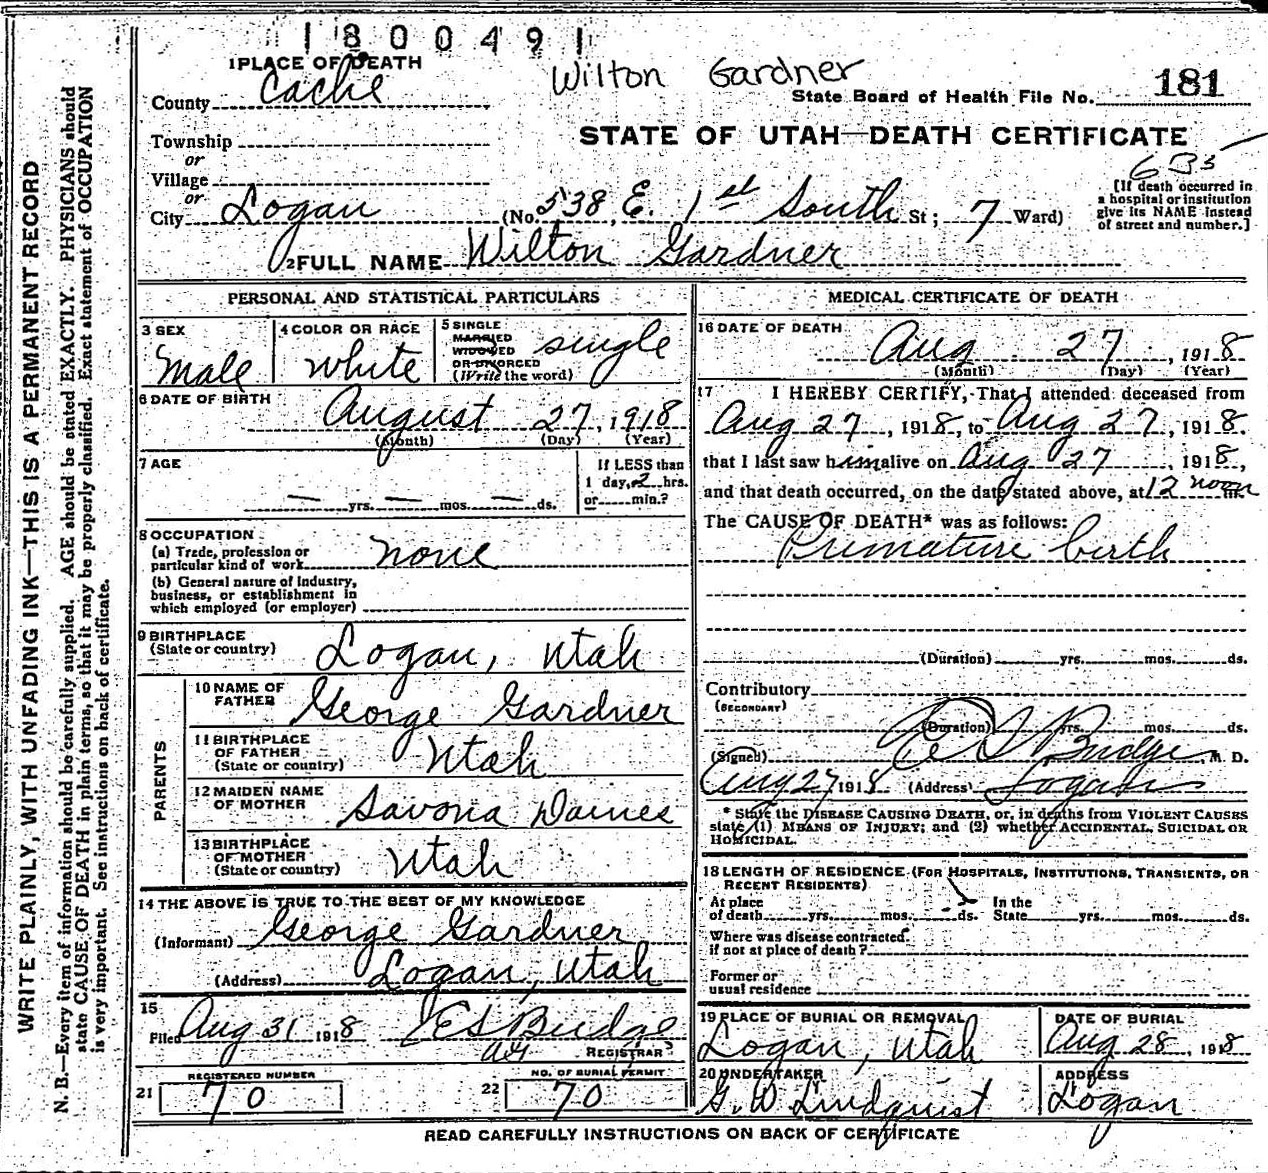 1800491
1 PLACE OF DEATH
Wilton Gardner
County Cache
State Board of Health File No. 181
Township
STATE OF UTAH—DEATH CERTIFICATE
or
Village
635
or
City Logan (No. 538, E. 1st South St; 7 Ward)
[If death occurred in
a hospital or institution
give its NAME instead
of street and number.]
2 FULL NAME Wilton Gardner
PERSONAL AND STATISTICAL PARTICULARS
3 SEX
Male
4 COLOR OR RACE
White
5 SINGLE
MARRIED
WIDOWED
OR DIVORCED
(Write the word)
single
6 DATE OF BIRTH
August 27, 1918
(Month) (Day) (Year)
7 AGE
— yrs. — mos. — ds.
If LESS than
1 day, 2 hrs.
or min.?
8 OCCUPATION
(a) Trade, profession or
particular kind of work none
(b) General nature of Industry,
business, or establishment in
which employed (or employer)
9 BIRTHPLACE
(State or country) Logan, Utah
PARENTS
10 NAME OF
FATHER George Gardner
11 BIRTHPLACE
OF FATHER
(State or country) Utah
12 MAIDEN NAME
OF MOTHER Savona Daines
13 BIRTHPLACE
OF MOTHER
(State or country) Utah
14 THE ABOVE IS TRUE TO THE BEST OF MY KNOWLEDGE
(Informant) George Gardner
(Address) Logan, Utah
15
Filed Aug 31 1918 E S Budge
REGISTRAR
REGISTERED NUMBER
21 70
NO. OF BURIAL PERMIT
22 70
MEDICAL CERTIFICATE OF DEATH
16 DATE OF DEATH
Aug 27, 1918
(Month) (Day) (Year)
17 I HEREBY CERTIFY, That I attended deceased from
Aug 27, 1918, to Aug 27, 1918.
that I last saw him alive on Aug 27, 1918,
and that death occurred, on the date stated above, at 12 noon m.
The CAUSE OF DEATH* was as follows:
Premature birth
(Duration) yrs. mos. ds.
Contributory
(SECONDARY)
(Duration) yrs. mos. ds.
(Signed) Budge, M. D.
Aug 27 1918 (Address) Logan
* State the DISEASE CAUSING DEATH, or, in deaths from VIOLENT CAUSES
state (1) MEANS OF INJURY; and (2) whether ACCIDENTAL, SUICIDAL OR
HOMICIDAL.
18 LENGTH OF RESIDENCE (FOR HOSPITALS, INSTITUTIONS, TRANSIENTS, OR
RECENT RESIDENTS)
At place
of death yrs. mos. ds.
In the
State yrs. mos. ds.
Where was disease contracted
if not at place of death?
Former or
usual residence
19 PLACE OF BURIAL OR REMOVAL
Logan, Utah
DATE OF BURIAL
Aug 28, 1918
20 UNDERTAKER
G. W Lindquist
ADDRESS
Logan
READ CAREFULLY INSTRUCTIONS ON BACK OF CERTIFICATE
WRITE PLAINLY, WITH UNFADING INK—THIS IS A PERMANENT RECORD
N. B.—Every item of information should be carefully supplied. AGE should be stated EXACTLY. PHYSICIANS should
state CAUSE OF DEATH in plain terms, so that it may be properly classified. Exact statement of OCCUPATION
is very important. See instructions on back of certificate.